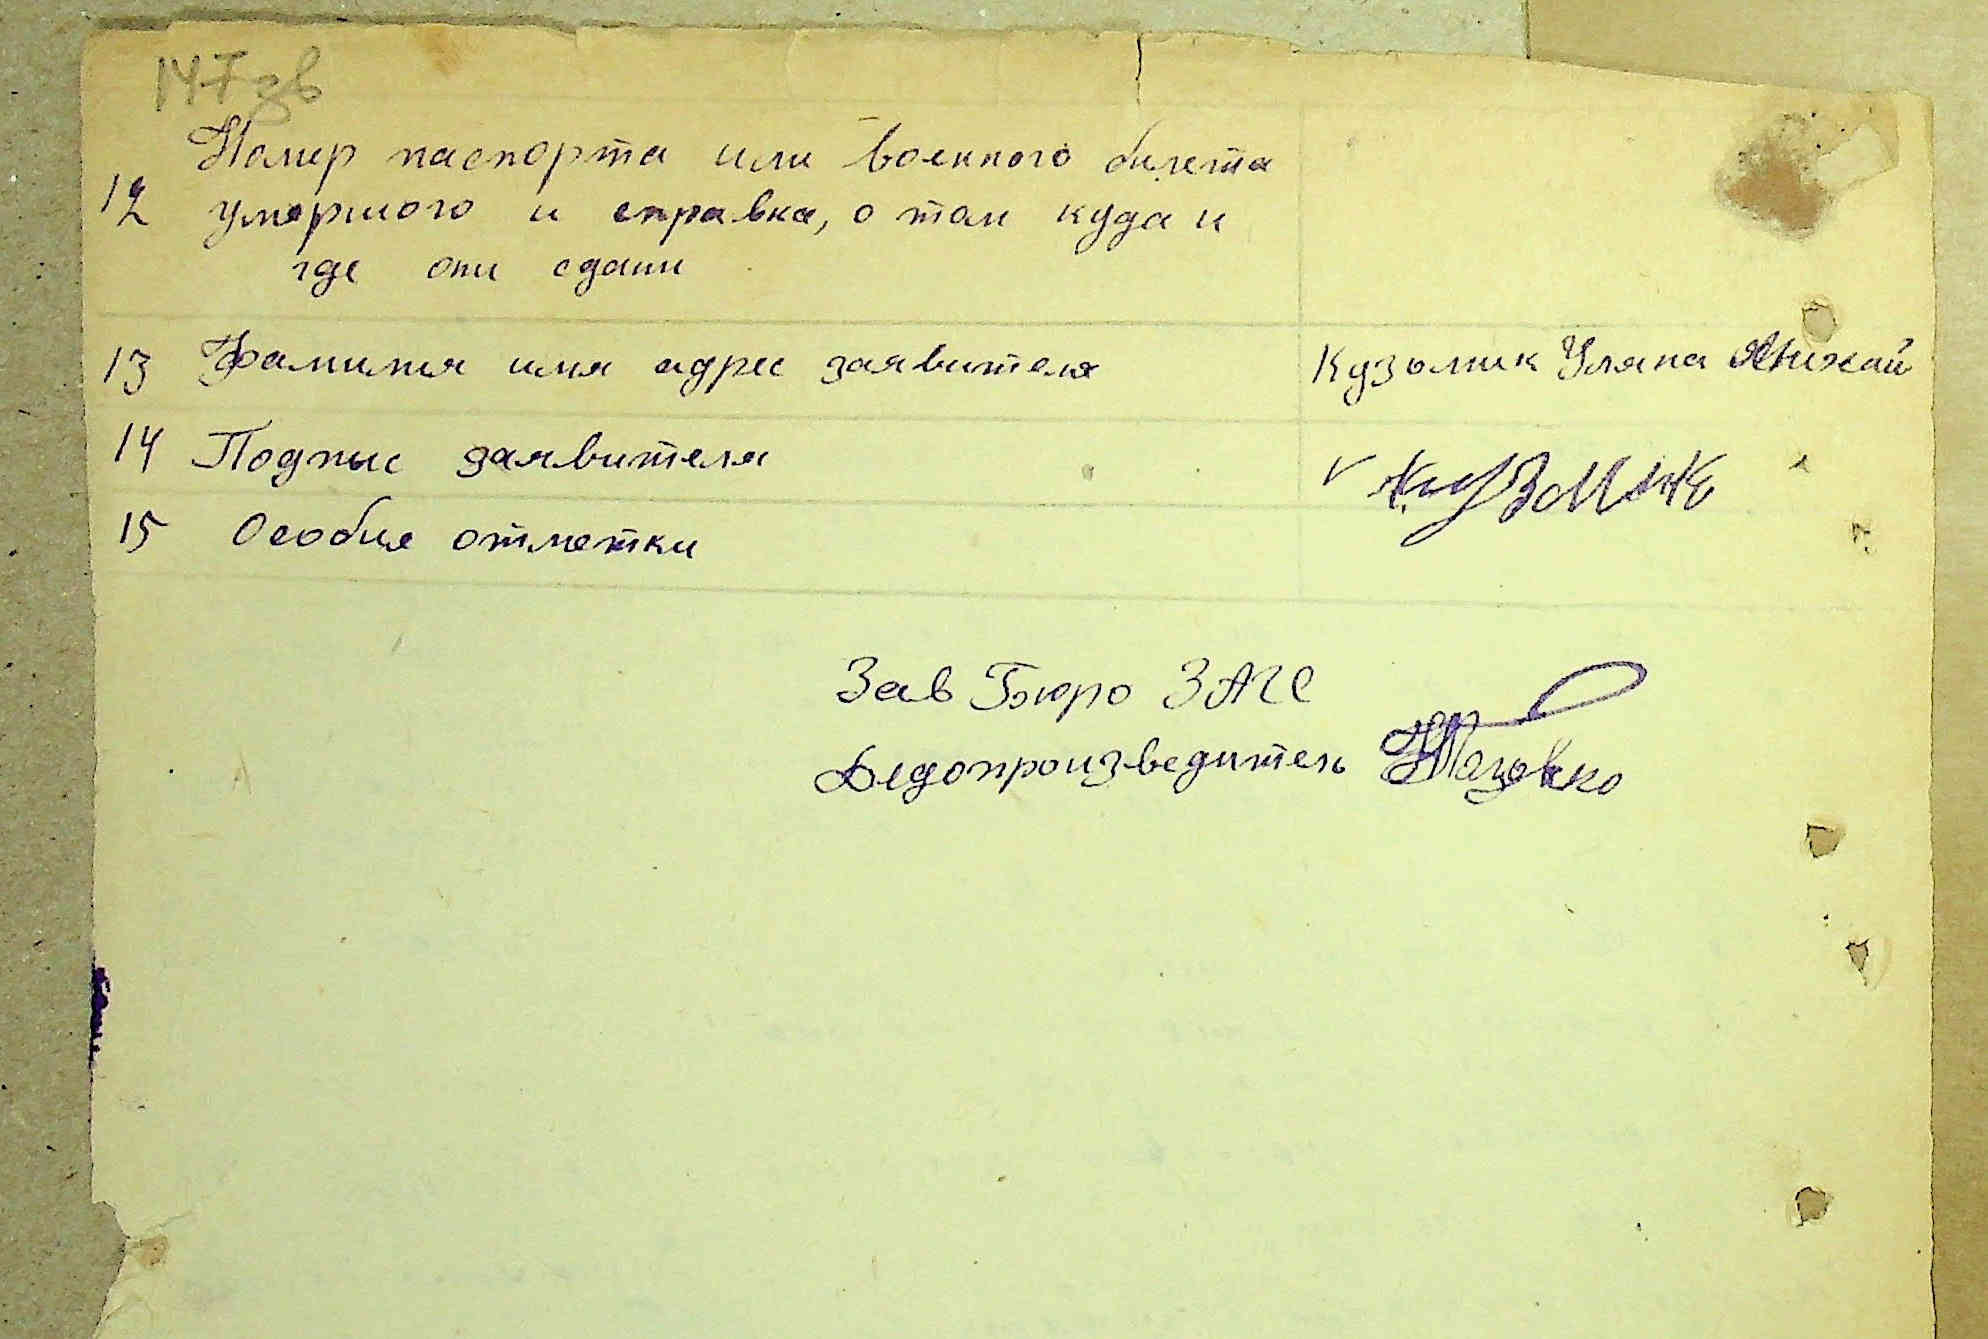 147 зв
Номер паспорта или военного билета
12 умершого и справка, о том куда и
где они сдани
13 Фамилия имя адрес заявителя Кузьмик Уляна Михай
14 Подпыс заявителя v Кузмик
15 Особие отметки
Зав Бюро ЗАГС
Делопроизведитель